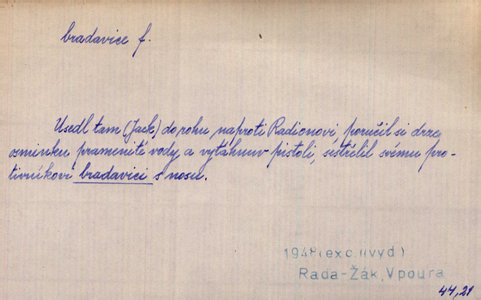 bradavice f.
Usedl tam (Jack) do rohu naproti Radionovi, poručil si drze
osminku pramenité vody a vytáhnuv pistoli, sestřelil svému pro-
tivníkovi bradavici s nosu.
1948 (exc. II vyd)
Rada-Žák, Vpoura
44, 21